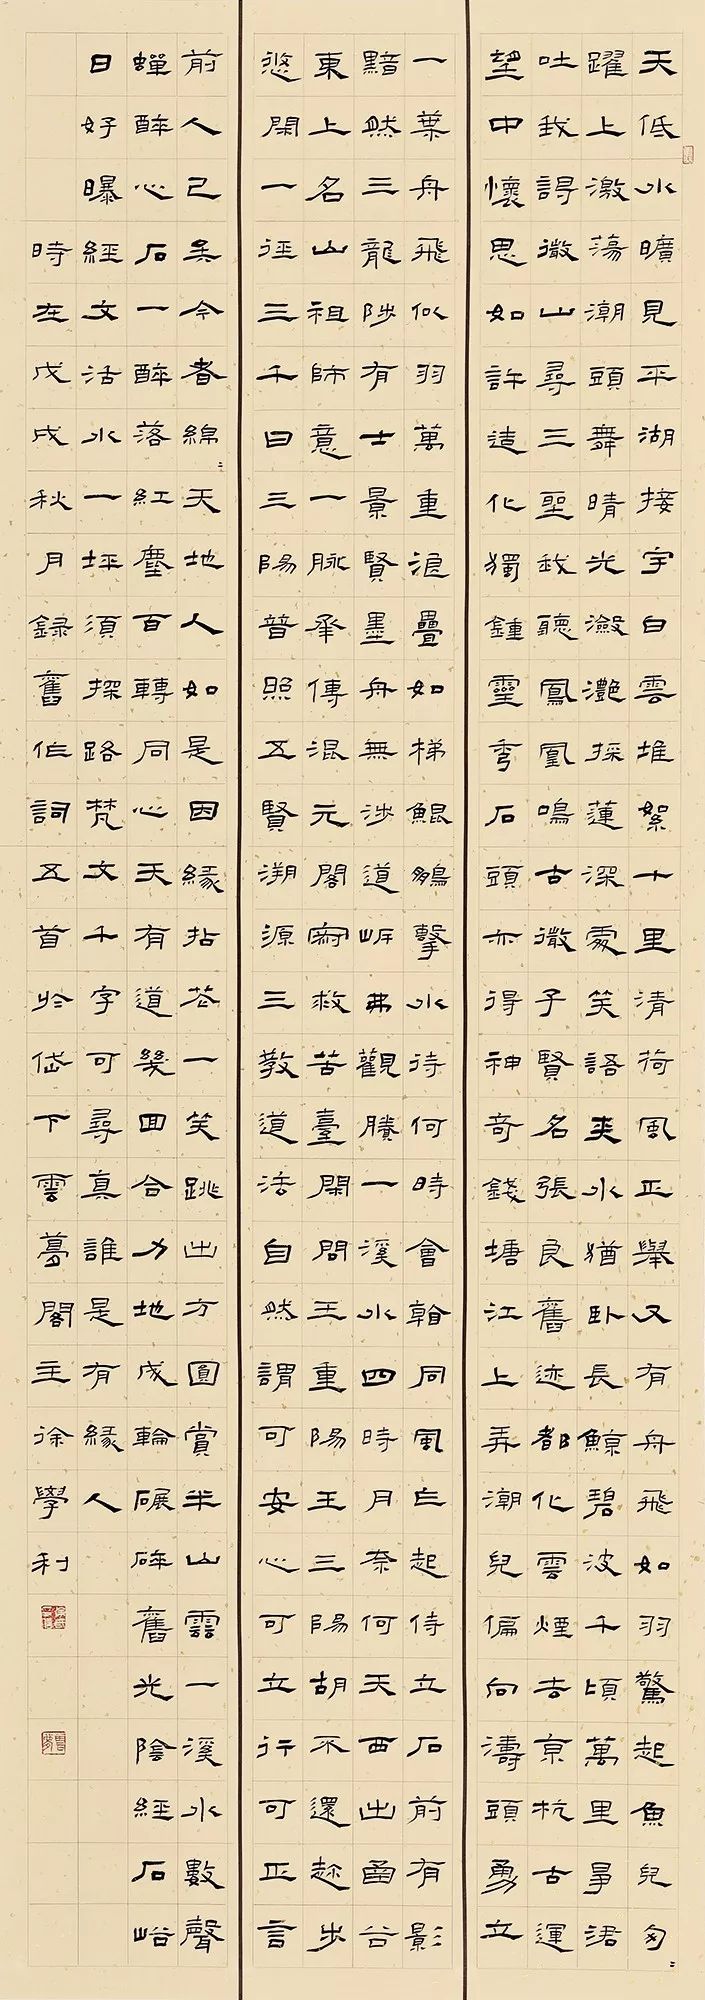 天低水曠見平湖接宇白雲堆絮十里清荷風正舉又有舟飛如羽驚起魚兒匆〻
躍上激蕩潮頭舞晴光瀲灩採蓮深處笑語夾水猶臥長鯨碧波千頃萬里爭
吐我微山尋三聖我聽鳳凰鳴古微子賢名張良舊迹都化雲煙去京杭古運
望中懷思如許造化獨鍾靈秀石頭亦得神奇錢塘江上弄潮兒偏向濤頭勇立
一葉舟飛似羽萬重浪疊如梯鯤鵬擊水待何時會翰同風起侍立石前有影
黯然三龍陟有士景賢墨舟無涉道岸弗觀勝一溪水四時月奈何天西出函谷
東上名山祖師意一脈承傳混元閣救苦臺閑問王重陽王三陽胡不還趂步
悠閑一徑三千曰三陽普照五賢溯源三教道活自然謂可安心可立行可正言
前人已矣今者綿〻天地人如是因緣拈花一笑跳出方圓賞半山雲一溪水數聲
蟬醉心石一醉落紅塵百轉同心天有道幾回合力地成輪碾碎舊光陰經石峪
日好曝經文活水一坪須探路梵文千字可尋真誰是有緣人
時在戊戌秋月錄舊作詞五首於岱下雲夢閣主徐學利